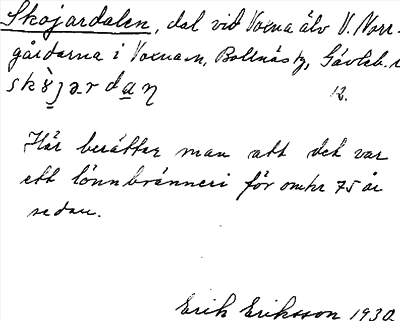 Skojardalen, dal vid Voxna älv V. Norr-
gårdarna i Voxnan, Bollnäs tg, Gävleb. l
skò̤jardan̤
12.
Här berättar man att det var
ett lönnbränneri för omkr 75 år
sedan.
Erik Eriksson 1930